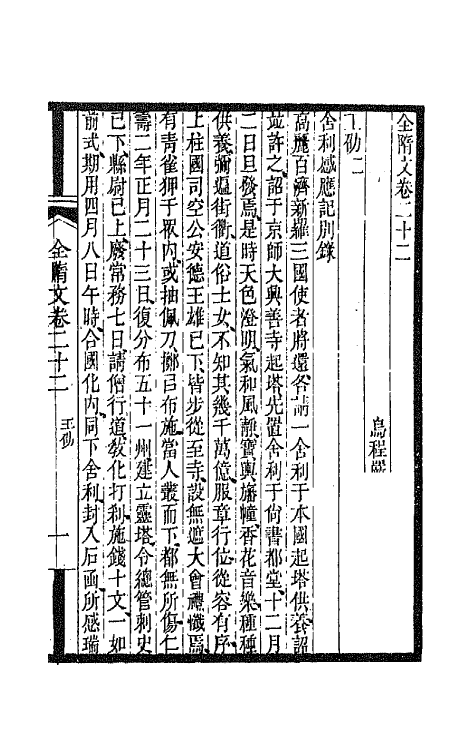 全隋文卷二十二
烏程嚴
王劭二
舍利感應記別錄
高麗百濟新羅三國使者將還各請一舍利于本國起塔供養詔
竝許之詔于京師大興善寺起塔先置舍利于尚書都堂十二月
二日旦發焉是時天色澄明氣和風靜寶輿旛幢香花音樂種種
供養彌遍街衢道俗士女不知其幾千萬億服章行位從容有序
上柱國司空公安德王雄已下皆步從至寺設無遮大會禮懺焉
有青雀狎于眾內或抽佩刀擲曰布施當人叢而下都無所傷仁
壽二年正月二十三日復分布五十一州建立靈塔令總管刺史
已下縣尉已上廢常務七日請僧行道敎化打剎施錢十文一如
前式期用四月八日午時合國化內同下舍利封入石函所感瑞
全隋文卷二十二
王劭
一